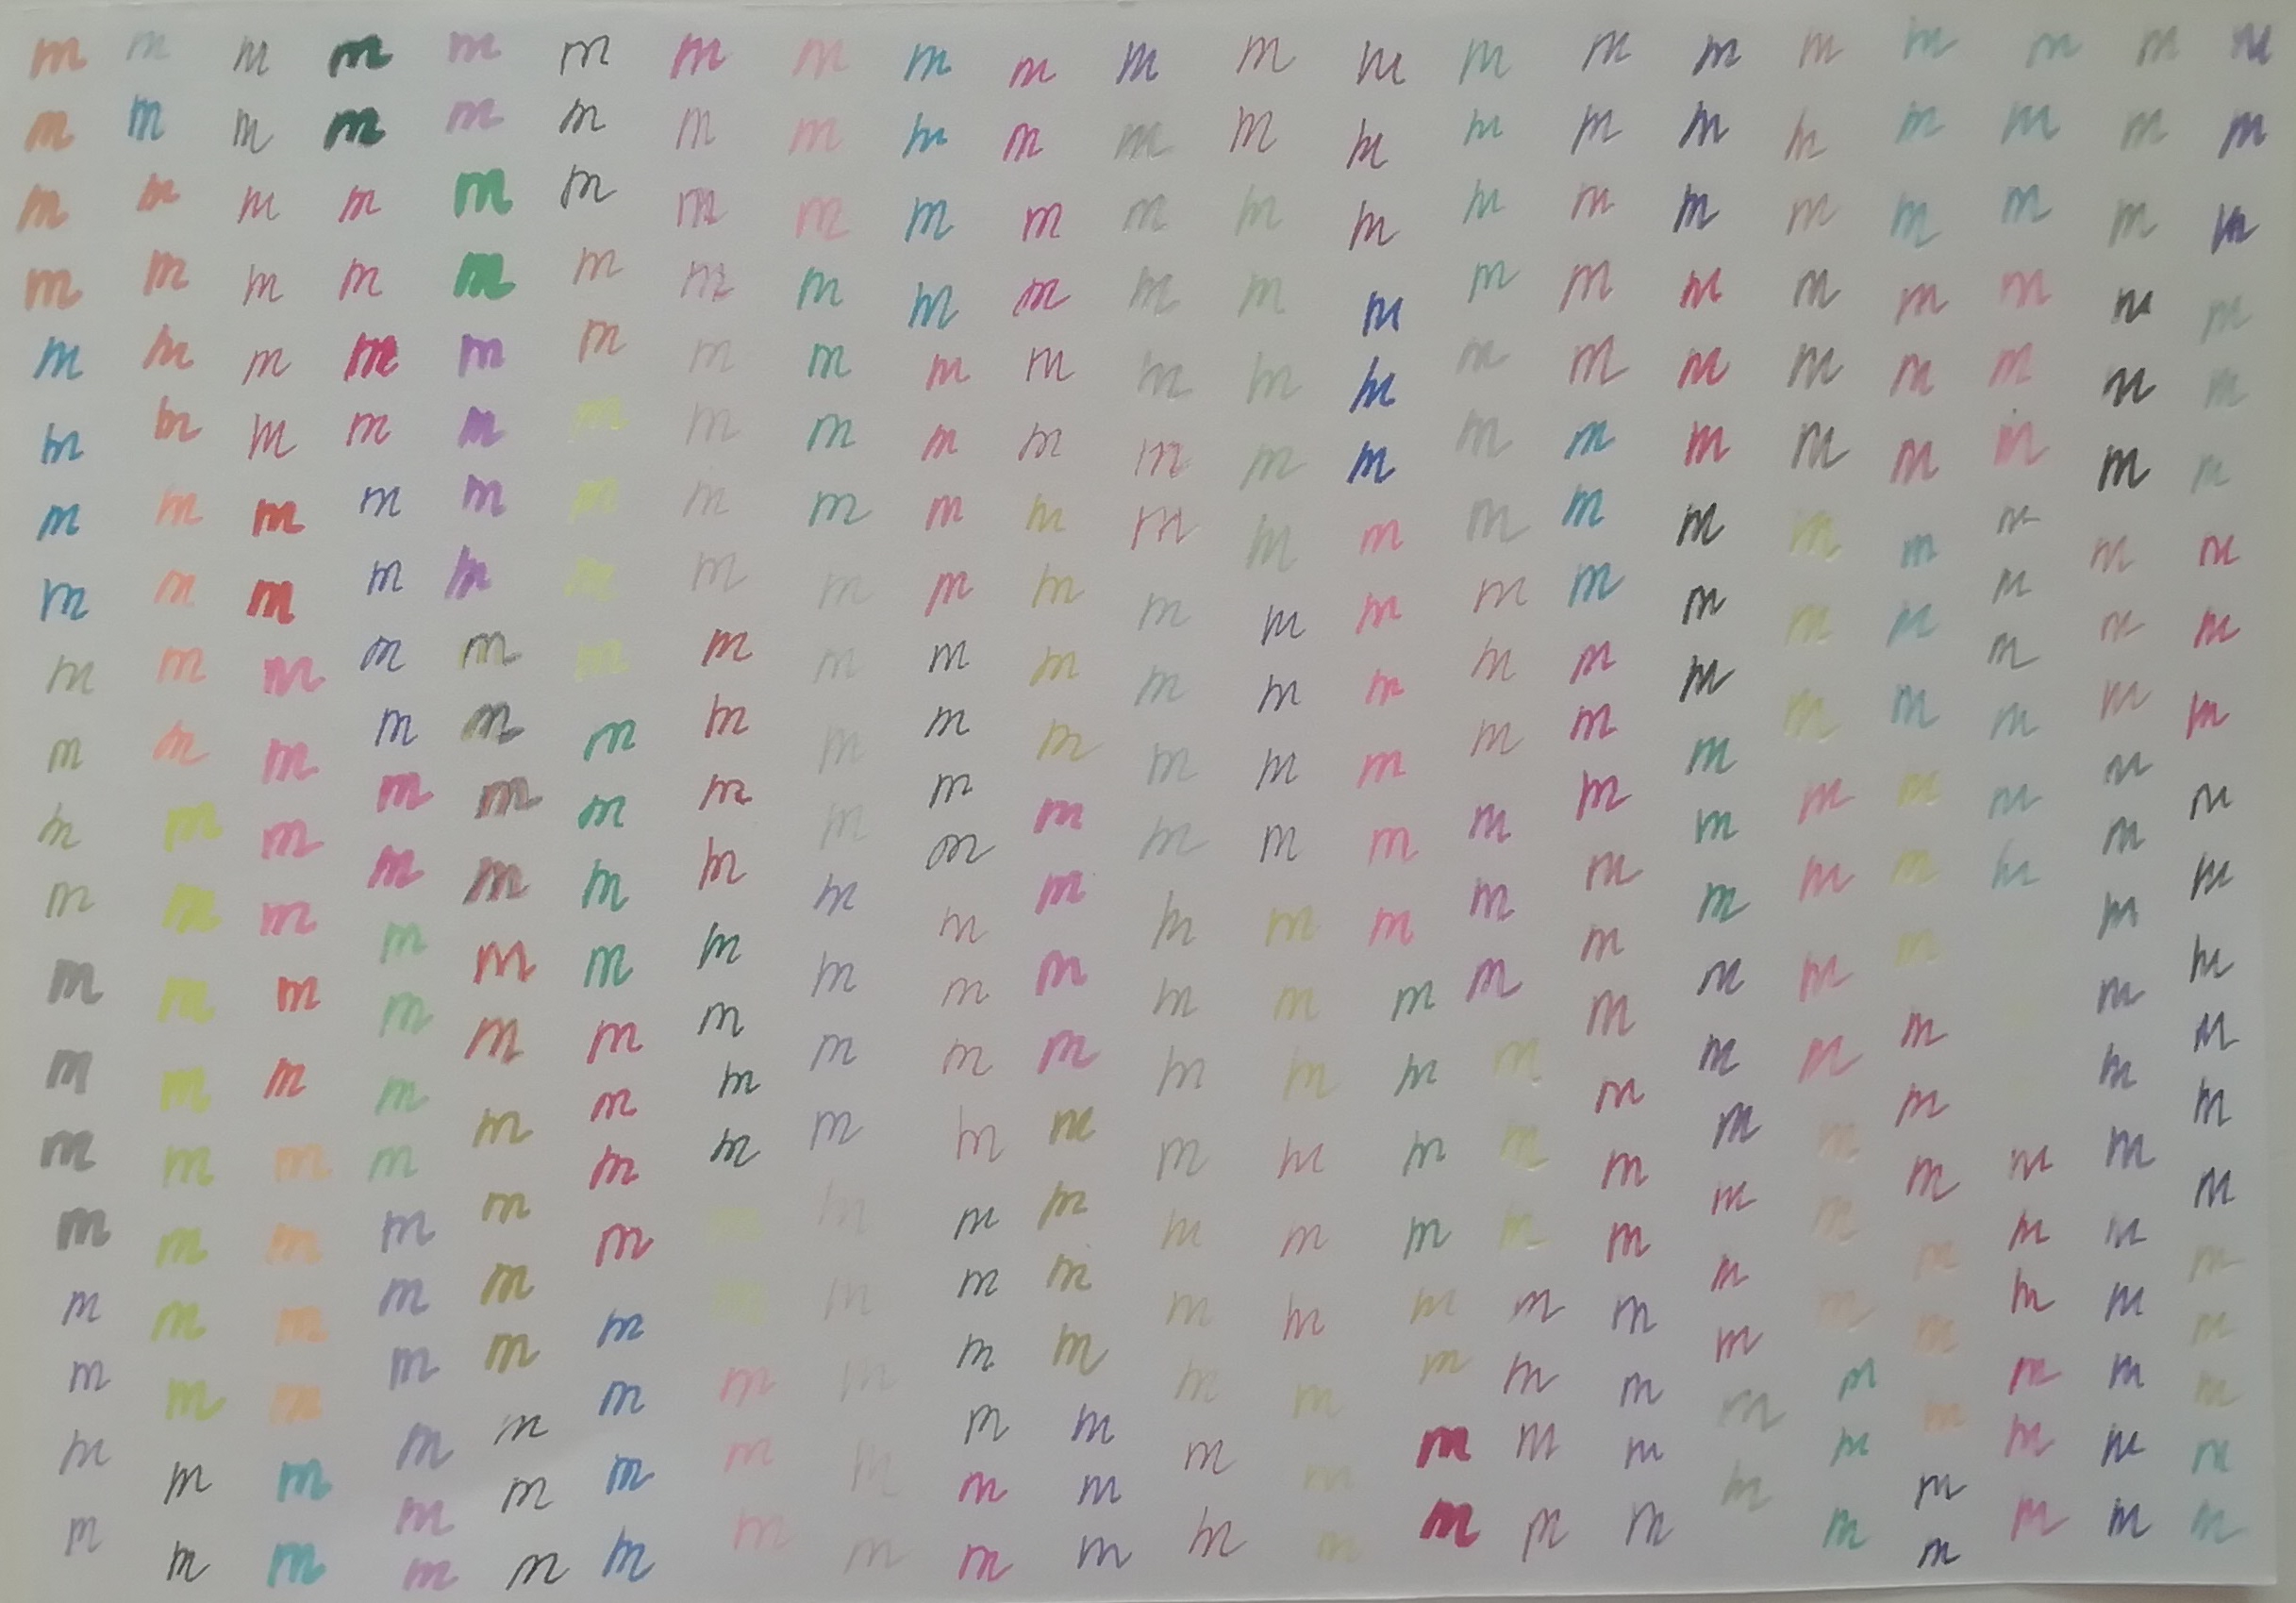 m m m m m m m m m m m m m m m m m m m m m
m m m m m m m m m m m m m m m m m m m m m
m m m m m m m m m m m m m m m m m m m m m
m m m m m m m m m m m m m m m m m m m m m
m m m m m m m m m m m m m m m m m m m m m
m m m m m m m m m m m m m m m m m m m m m
m m m m m m m m m m m m m m m m m m m m m
m m m m m m m m m m m m m m m m m m m m m
m m m m m m m m m m m m m m m m m m m m m
m m m m m m m m m m m m m m m m m m m m m
m m m m m m m m m m m m m m m m m m m m m
m m m m m m m m m m m m m m m m m m m m m
m m m m m m m m m m m m m m m m m m m m
m m m m m m m m m m m m m m m m m m m m
m m m m m m m m m m m m m m m m m m m m m
m m m m m m m m m m m m m m m m m m m m m
m m m m m m m m m m m m m m m m m m m m m
m m m m m m m m m m m m m m m m m m m m m
m m m m m m m m m m m m m m m m m m m m m
m m m m m m m m m m m m m m m m m m m m m